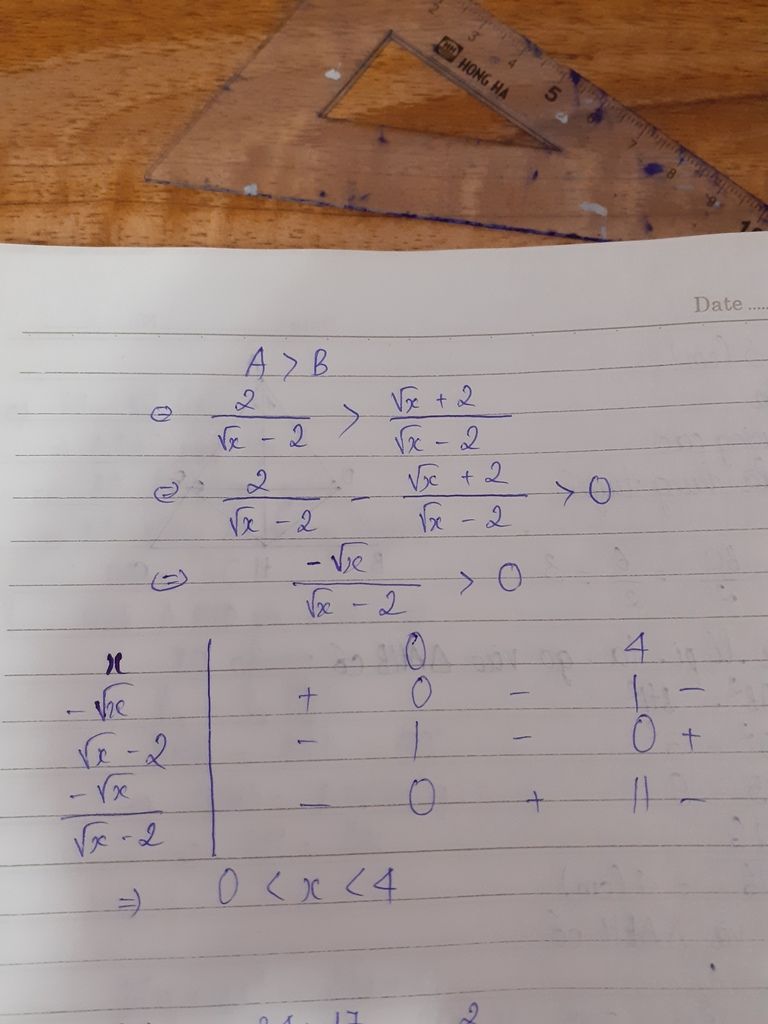 2 3 4 5 6 7 8 9 10
HONG HA
Date .....
A > B
⇔ 2/(√x - 2) > (√x + 2)/(√x - 2)
⇔ 2/(√x - 2) - (√x + 2)/(√x - 2) > 0
⇔ -√x/(√x - 2) > 0
x | 0 4
-√x | + 0 - | -
√x - 2 | - | - 0 +
-√x/(√x - 2) | - 0 + || -
⇒ 0 < x < 4